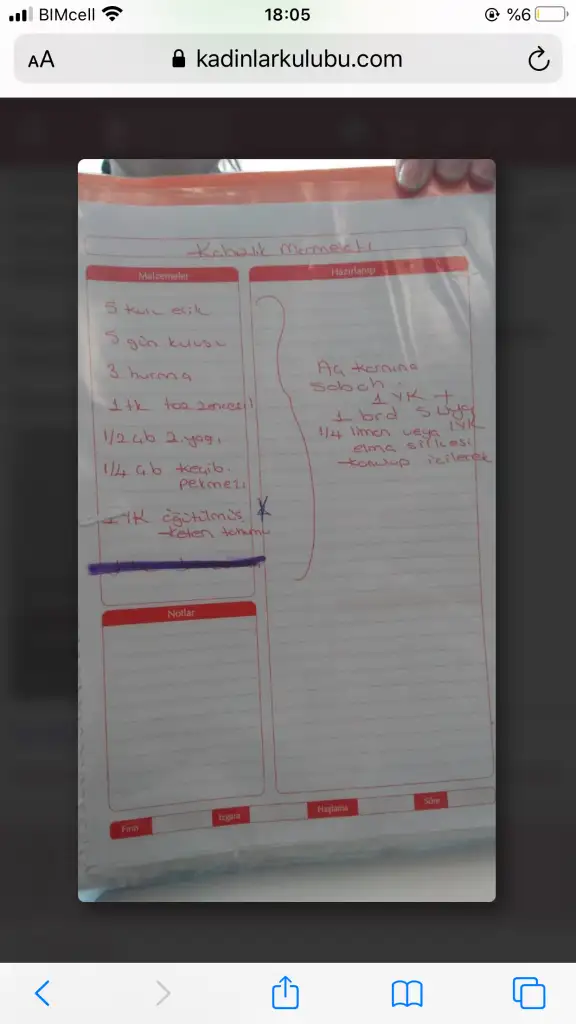 BIMcell
18:05
%6
AA
kadinlarkulubu.com
Kabızlık Marmeladı
Malzemeler
5 kuru erik
5 gün kurusu
3 hurma
1 tk toz zencefil
1/2 çb z.yağı
1/4 çb keçib.
pekmezi
1 YK öğütülmüş
keten tohumu
Hazırlanışı
Aç karnına
sabah
1 YK +
1 brd suya
1/4 limon veya 1YK
elma sirkesi
içilecek
Notlar
Fırın
Izgara
Haşlama
Süre